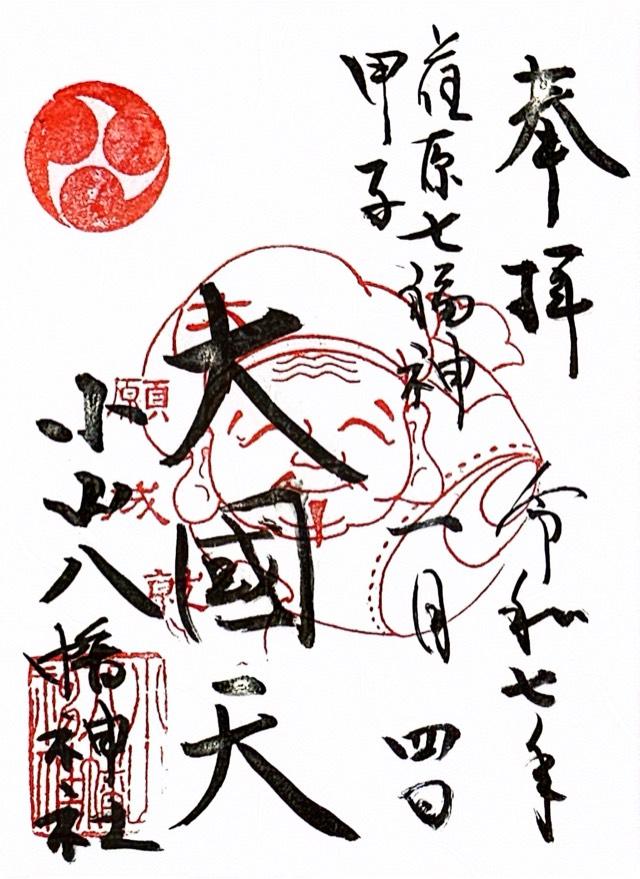 奉拝 令和七年
荏原七福神 一月四日
甲子
大國天
願成就
小山八幡神社